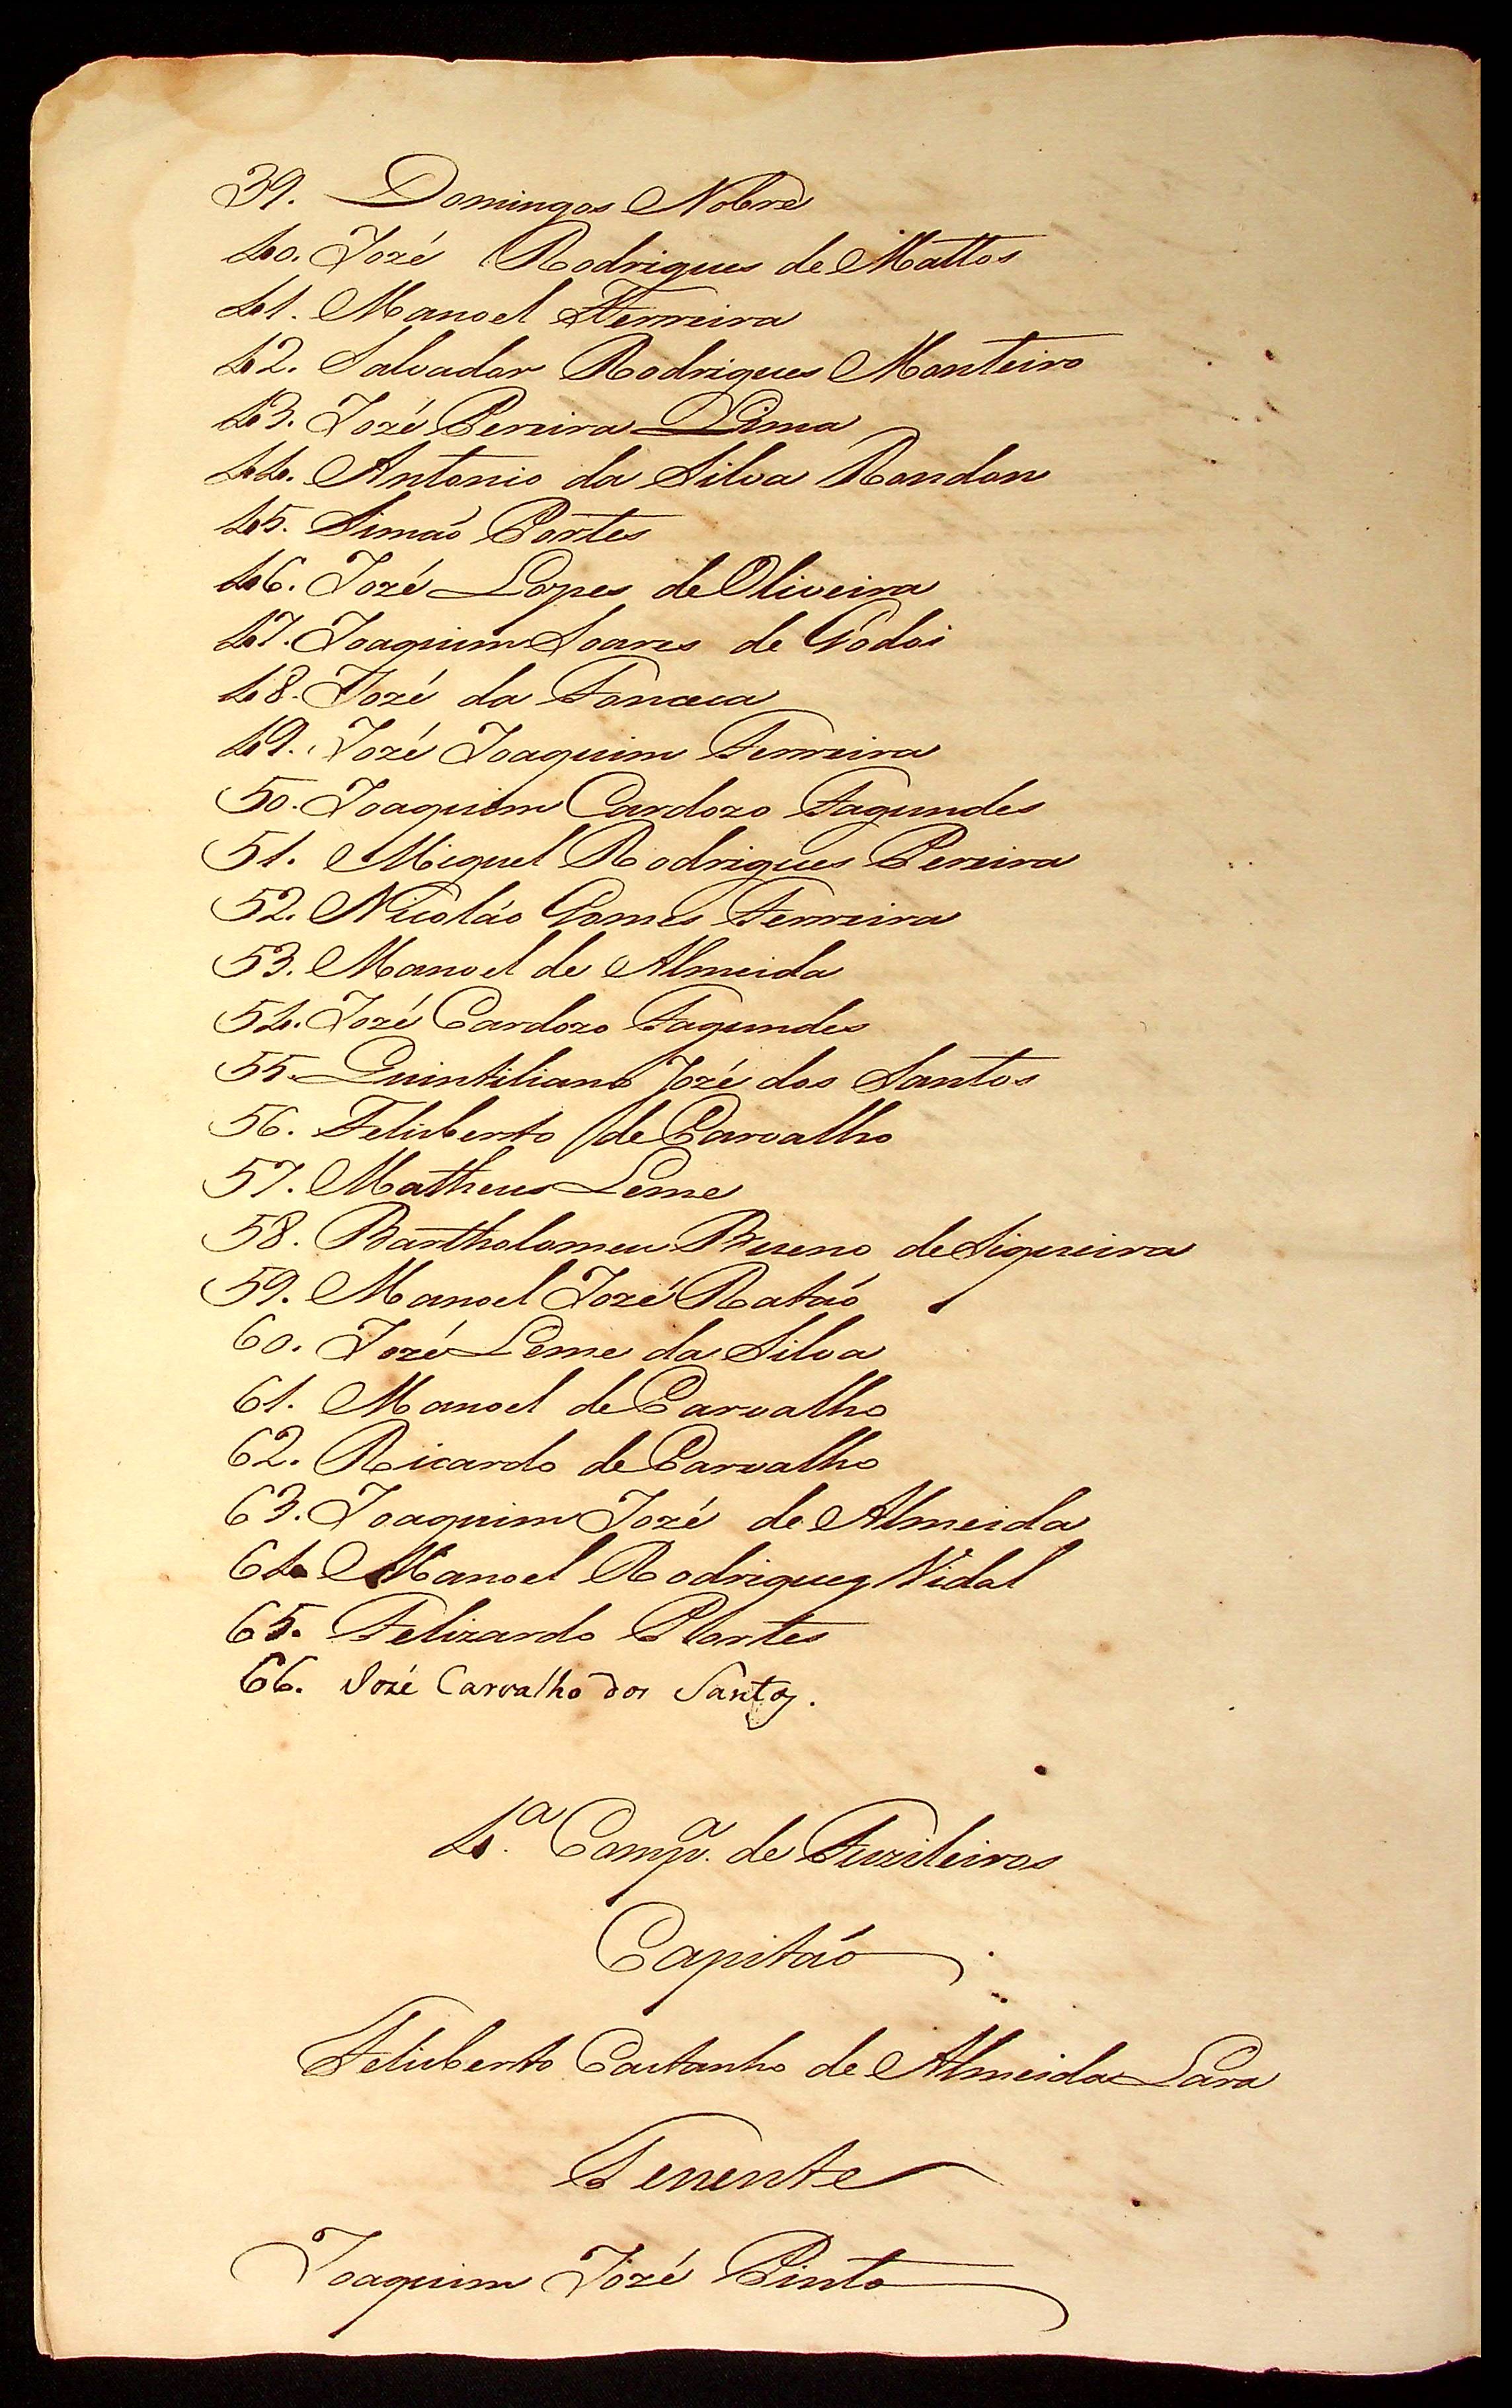 39. Domingos Nobre
40. Jozé Rodrigues de Mattos
41. Manoel Ferreira
42. Salvador Rodrigues Monteiro
43. Jozé Pereira Lima
44. Antonio da Silva Rondon
45. Simaõ Portes
46. Jozé Lopes de Oliveira
47. Joaquim Soares de Godoi
48. Jozé da Fonceca
49. Jozé Joaquim Ferreira
50. Joaquim Cardozo Fagundes
51. Miguel Rodrigues Pereira
52. Nicoláo Gomes Ferreira
53. Manoel de Almeida
54. Jozé Cardozo Fagundes
55. Quintiliano Jozé dos Santos
56. Felisberto de Carvalho
57. Matheus Leme
58. Bartholomeu Bueno de Siqueira
59. Manoel Jozé Rataõ
60. Jozé Leme da Silva
61. Manoel de Carvalho
62. Ricardo de Carvalho
63. Joaquim Jozé de Almeida
64. Manoel Rodrigues Vidal
65. Felizardo Portes
66. Jozé Carvalho dos Santos.
4.ª Comp.ª de Fuzileiros
Capitaõ
Felisberto Castanho de Almeida Lara
Tenente
Joaquim Jozé Pinto